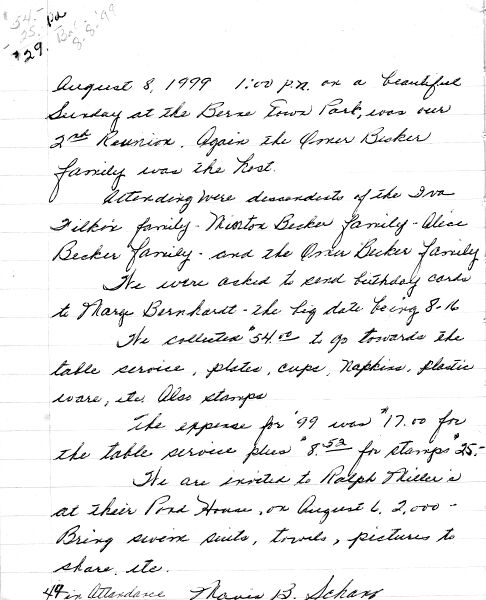 54.- Pd
- 25.
$29. Bal 8-8-'99
August 8, 1999 1:00 p.m. on a beautiful
Sunday at the Berne Town Park, was our
2nd Reunion. Again the Omer Becker
family was the host.
Attending were descendists of the Iva
Filkin family - Minton Becker family - Alice
Becker family - and the Omer Becker family
We were asked to send birthday cards
to Marge Bernhardt - the big date being 8-16
We collected $54.00 to go towards the
table service, plates, cups, napkins, plastic
ware, etc. Also stamps
The expense for '99 was $17.00 for
the table service plus $8.52 for stamps $25.-
We are invited to Ralph Miller's
at their Pond House, on August 6, 2,000 -
Bring swim suits, towels, pictures to
share, etc.
44 in Attendance Mavis B. Scham